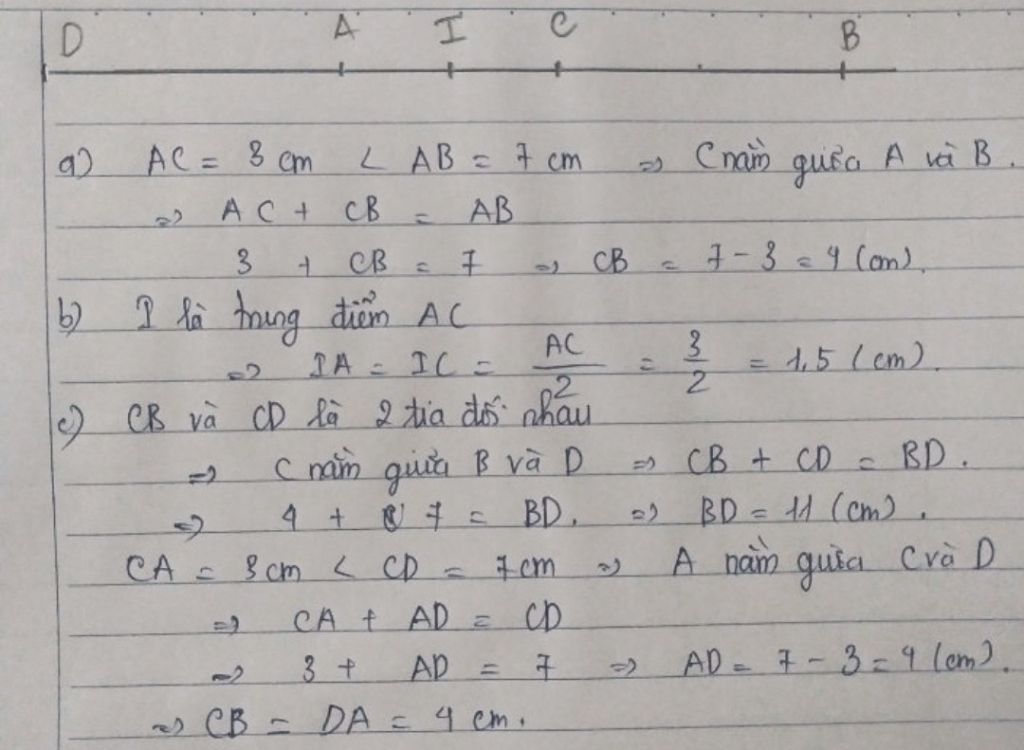 D A I C B
a) AC = 3 cm < AB = 7 cm => C nằm giữa A và B.
=> AC + CB = AB
3 + CB = 7 => CB = 7 - 3 = 4 (cm).
b) I là trung điểm AC
=> IA = IC = AC/2 = 3/2 = 1,5 (cm).
c) CB và CD là 2 tia đối nhau
=> C nằm giữa B và D => CB + CD = BD.
=> 4 + 7 = BD. => BD = 11 (cm).
CA = 3cm < CD = 7cm => A nằm giữa C và D
=> CA + AD = CD
=> 3 + AD = 7 => AD = 7 - 3 = 4 (cm).
=> CB = DA = 4 cm.